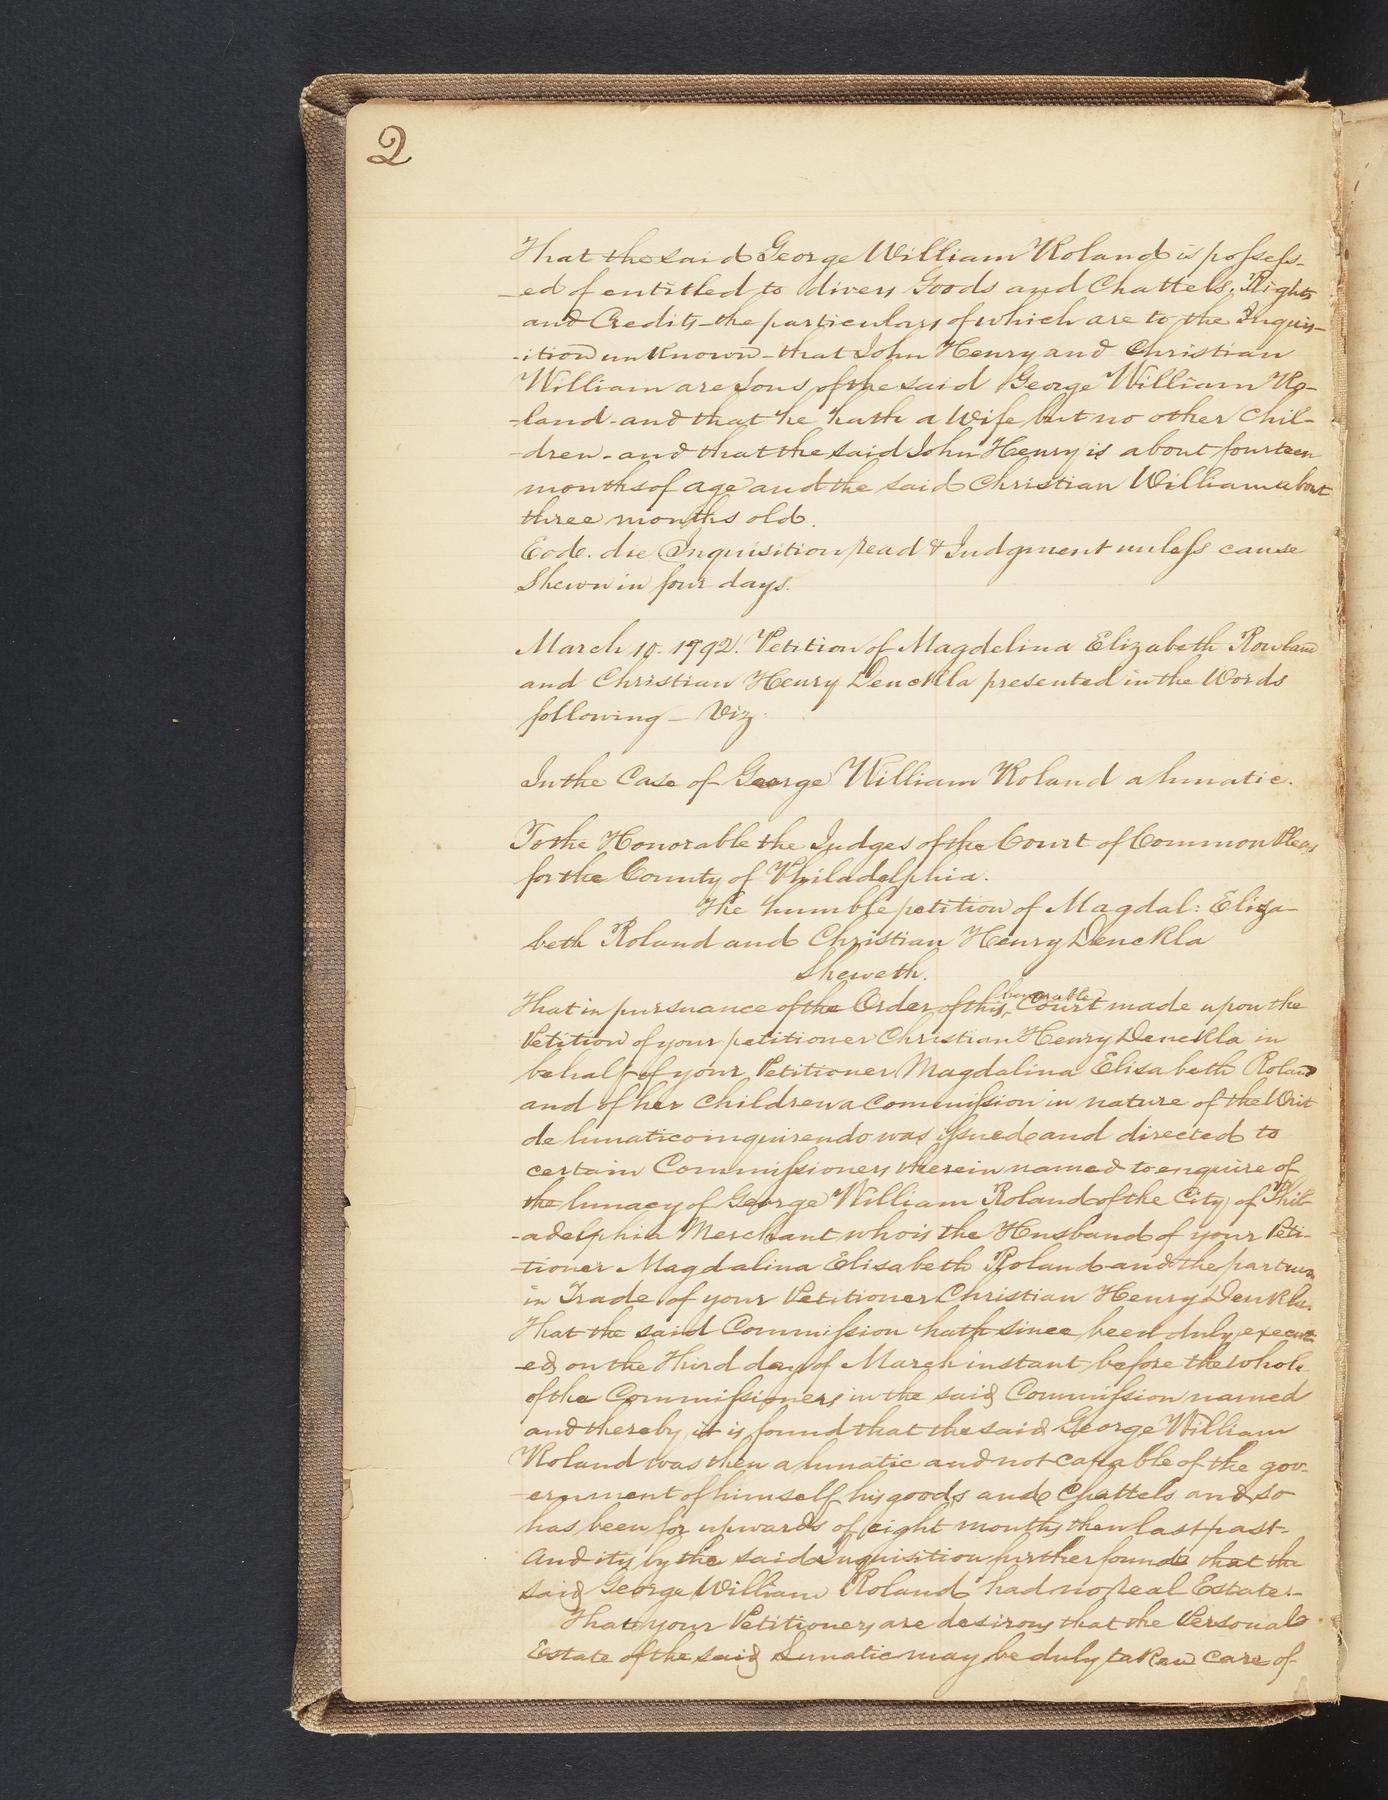 2
That the said George William Roland is possess-
-ed of entitled to divers Goods and Chattels, Rights
and Credits - the particulars of which are to the Inquis-
-ition unknown - that John Henry and Christian
William are Sons of the said George William Ro-
-land - and that he hath a Wife but no other Chil-
-dren - and that the said John Henry is about fourteen
months of age and the said Christian William about
three months old.
Eod. die Inquisition read & Judgment unless cause
Shewn in four days.
March 10. 1792. Petition of Magdelina Elizabeth Rowland
and Christian Henry Denckla presented in the Words
following - Viz:
In the Case of George William Roland a lunatic.
To the Honorable the Judges of the Court of Common Pleas
for the County of Philadelphia.
The humble petition of Magdal: Eliza-
beth Roland and Christian Henry Denckla
Sheweth.
That in pursuance of the Order of this honorable Court made upon the
Petition of your petitioner Christian Henry Denckla in
behalf of your Petitioner Magdalina Elisabeth Roland
and of her children a Commission in nature of the Writ
de lunatico inquirendo was issued and directed to
certain Commissioners therein named to enquire of
the lunacy of George William Roland of the City of Phil-
-adelphia Merchant who is the Husband of your Peti-
-tioner Magdalina Elisabeth Roland and the partner
in Trade of your Petitioner Christian Henry Denckla.
That the said Commission hath since been duly execut-
-ed on the Third day of March instant before the whole
of the Commissioners in the said Commission named
and thereby it is found that the said George William
Roland was then a lunatic and not capable of the gov-
-ernment of himself his goods and Chattels and so
has been for upwards of eight months then last past -
And it is by the said Inquisition further found that the
said George William Roland had no real Estate -
That your Petitioners are desirous that the Personal
Estate of the said Lunatic may be duly taken care of -